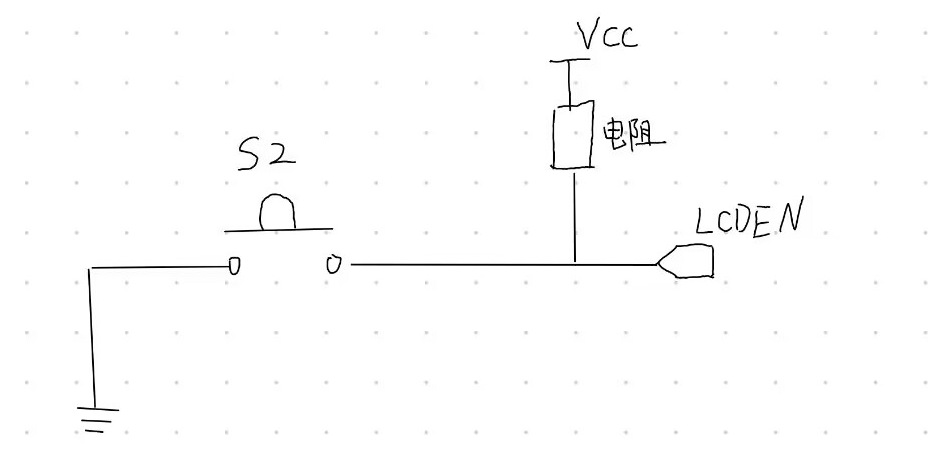 VCC
电阻
S2
LCDEN